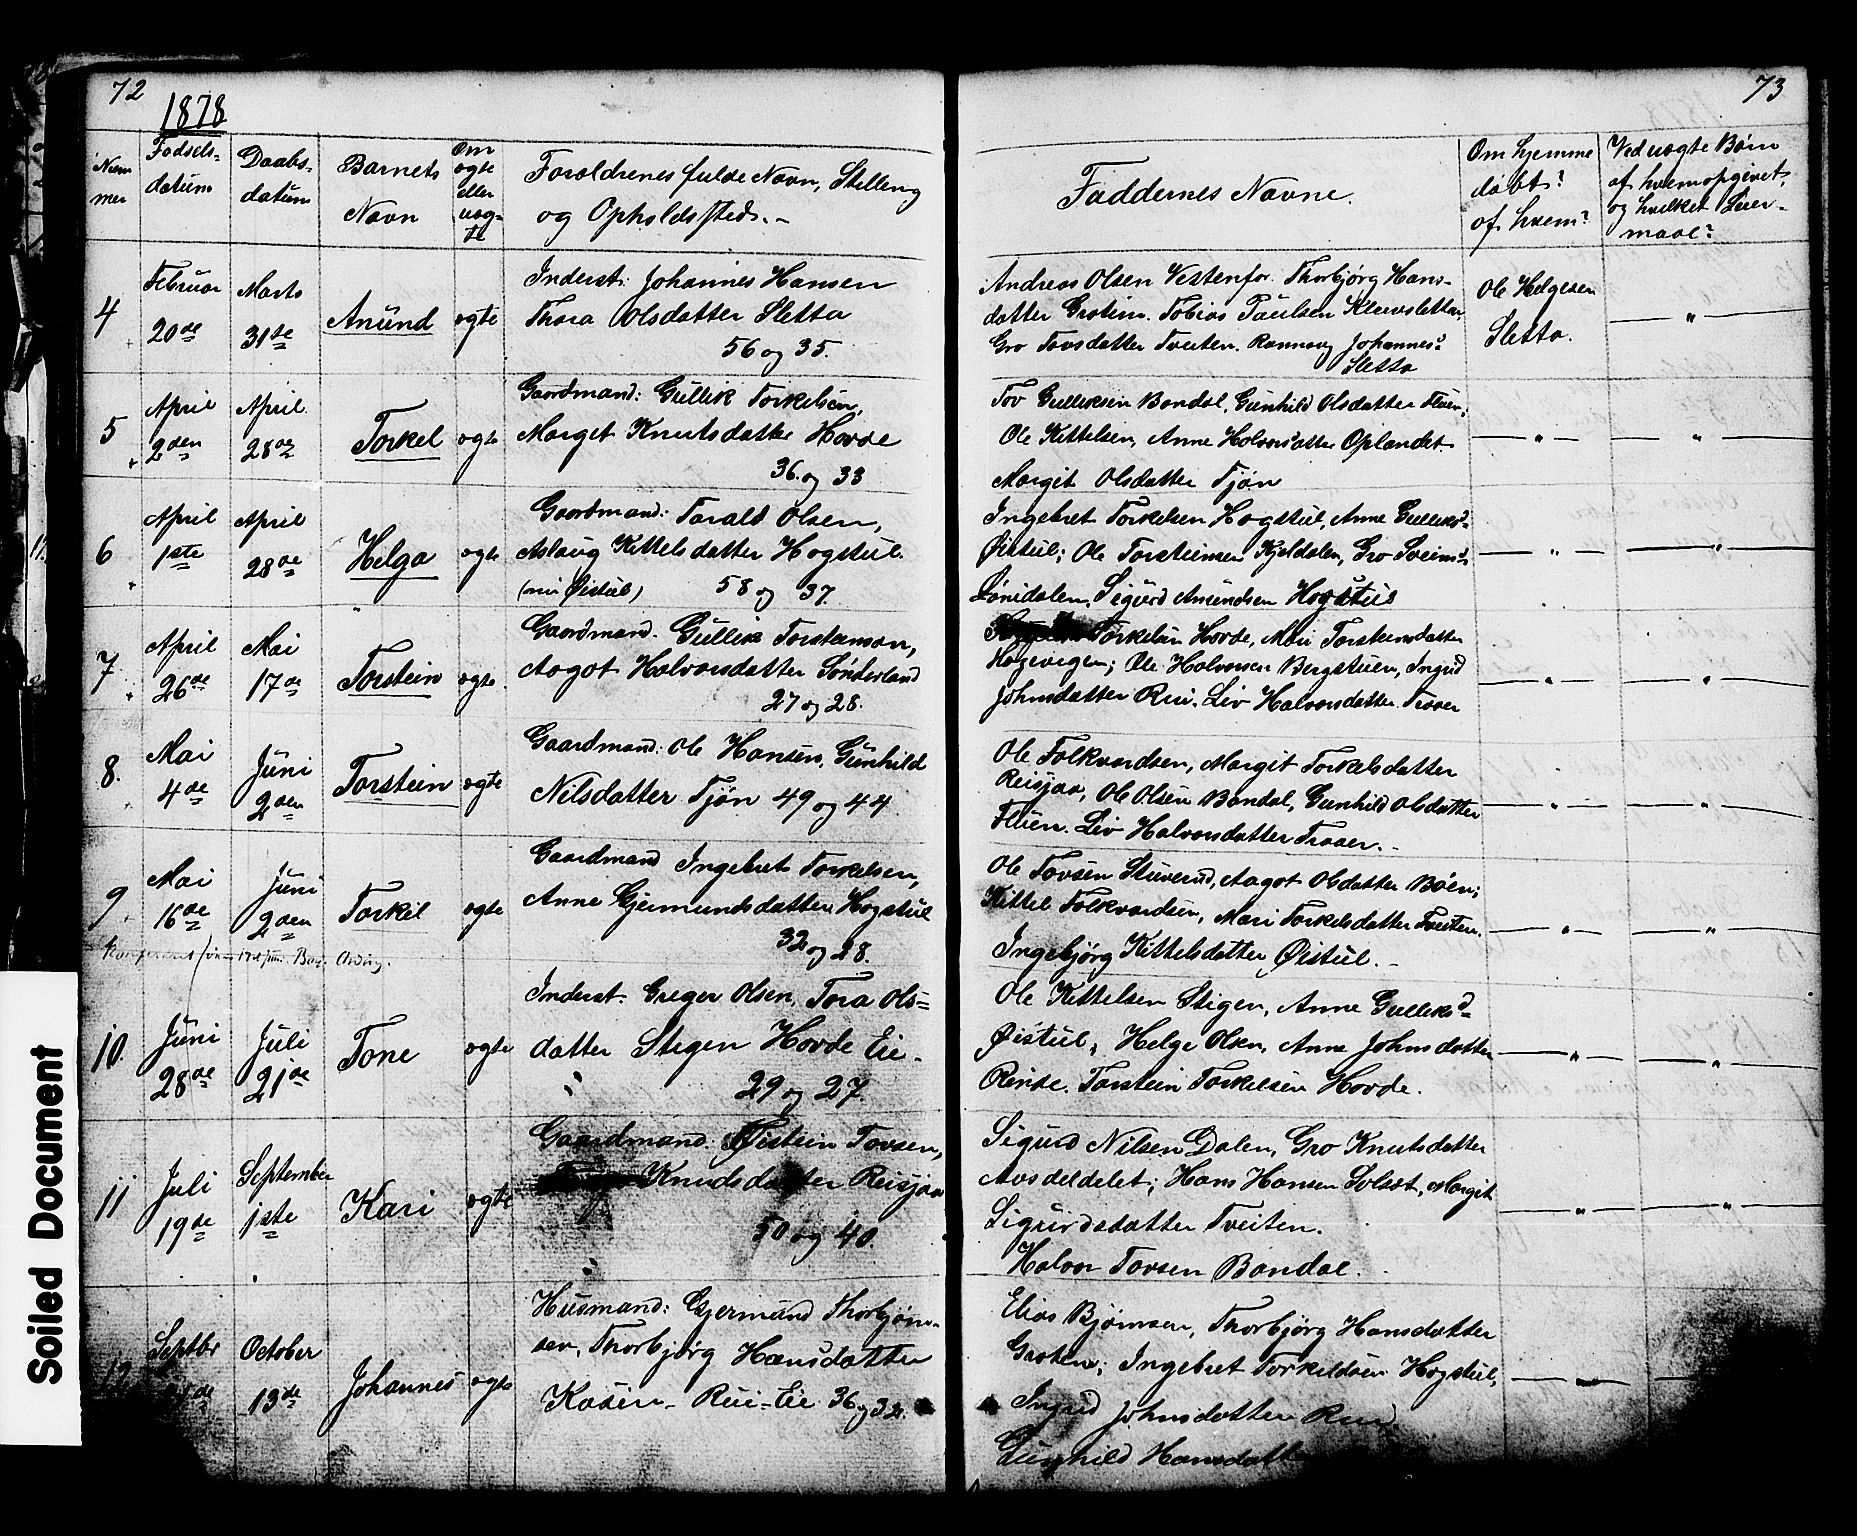 72
1878
Nummer
Fødsels-
datum
Daabs-
datum
Barnets
Navn
Om
ægte
eller
uæg-
te
Forældrenes fulde Navn, Stilling
og Opholdssted.-
4
Februar
20de
Marts
31te
Anund
ægte
Inderst: Johannes Hansen
Thora Olsdatter Sletta
56 og 35.
5
April
2den
April
28de
Torkel
ægte
Gaardmand: Gullik Torkelsen,
Margit Knutsdatter Hovde
36 og 33
6
April
1ste
April
28de
Helga
ægte
Gaardmand: Tarald Olsen,
Aslaug Kittelsdatter Hogstul.
Øistul) 58 og 37.
7
April
26de
Mai
17de
Torstein
ægte
Gaardmand. Gullik Torsteinson,
Aagot Halvorsdatter Sønderland
27 og 28.
8.
Mai
4de
Juni
2den
Torstein
ægte
Gaardmand: Ole Hansen, Gunhild
Nilsdatter Tjøn 49 og 44.
9
Mai
16de
Juni
2den
Torkil
ægte
Gaardmand Ingebret Torkelsen,
Anne Gjermundsdatter Hogstul
32 og 28.
10.
Juni
28de
Juli
21de
Tone
ægte
Inderst: Greger Olsen, Tora Ols=
datter Stigen Hovde Eie.
29 og 27.
11
Juli
19de
September
1ste
Kari
ægte
Gaardmand: Øistein Tovsen,
Knudsdatter Reisjaa
50 og 40.
12
Septbr
October
13de
Johannes
ægte
Husmand: Gjermund Thorbjørn-
sen, Thorbjørg Hansdatter
Kåsin - Rui-Eie 36 og 32.
73
Faddernes Navne.
Om hjemme
døbt?
af hvem?
Ved uægte Børn
af hvem opgivet,
og hvilket Leier-
maal?
Andreas Olsen Vestenfor. Thorbjørg Hans-
datter Grotin. Tobias Paulsen Kleivsletta,
Gro Tovsdatter Tveiten. Rannaug Johannes:
Sletta
Ole Helgesen
Sletta.
"
Tov Gulliksen Bondal, Gunhild Olsdatter Fluen;
Ole Kittelsen, Anne Halvorsdatter Oplandet
Margit Olsdatter Tjøn
" "
Ingebret Torkelsen Hogstul, Anne Gulliksd-
Øistul; Ole Torsteinsen Kjeldalen, Gro Sveins:
Lønidalen, Sigurd Amundsen Hogstul
" "
Torkelsen Hovde, Mari Torsteinsdatter
Hagevegen; Ole Halvorsen Bergstuen, Ingrid
Johnsdatter Rui. Liv Halvorsdatter Traaer
" "
Ole Folkvardsen, Margit Torkelsdatter
Reisjaa, Ole Olsen Bondal, Gunhild Olsdatter
Fluen. Liv Halvorsdatter Traaer.-
" "
Ole Tovsen Stuverud, Aagot Olsdatter Bøen;
Kittel Folkvardsen, Mari Torkelsdatter Tveiten.
Ingebjørg Kittelsdatter Øistul.-
" "
Ole Kittelsen Stigen, Anne Gulliksd-
Øistul, Helge Olsen, Anne Johnsdatter
Rinde. Torstein Torkelsen Hovde.
" "
Sigurd Nilsen Dalen, Gro Knutsdatter
Avsdeldelet; Hans Hansen Solset, Margit
Sigurdsdatter Tveiten.
Halvor Tovsen Bondal.
" "
Elias Bjørnsen, Thorbjørg Hansdatter
Groten; Ingebret Torkildsen Hogstul,
Ingrid Johnsdatter Rui
Gunhild Hansdatter
"
Soiled Document